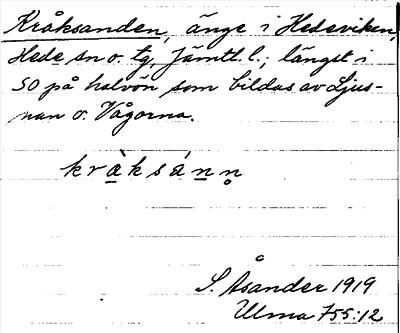 Kråksanden, änge i Hedeviken,
Hede sn o. tg, Jämtl. l.; längst i
SO på halvön som bildas av Ljus-
nan o. Vågorna.
kràksánn̥
S. Åsander 1919
Ulma 755:12